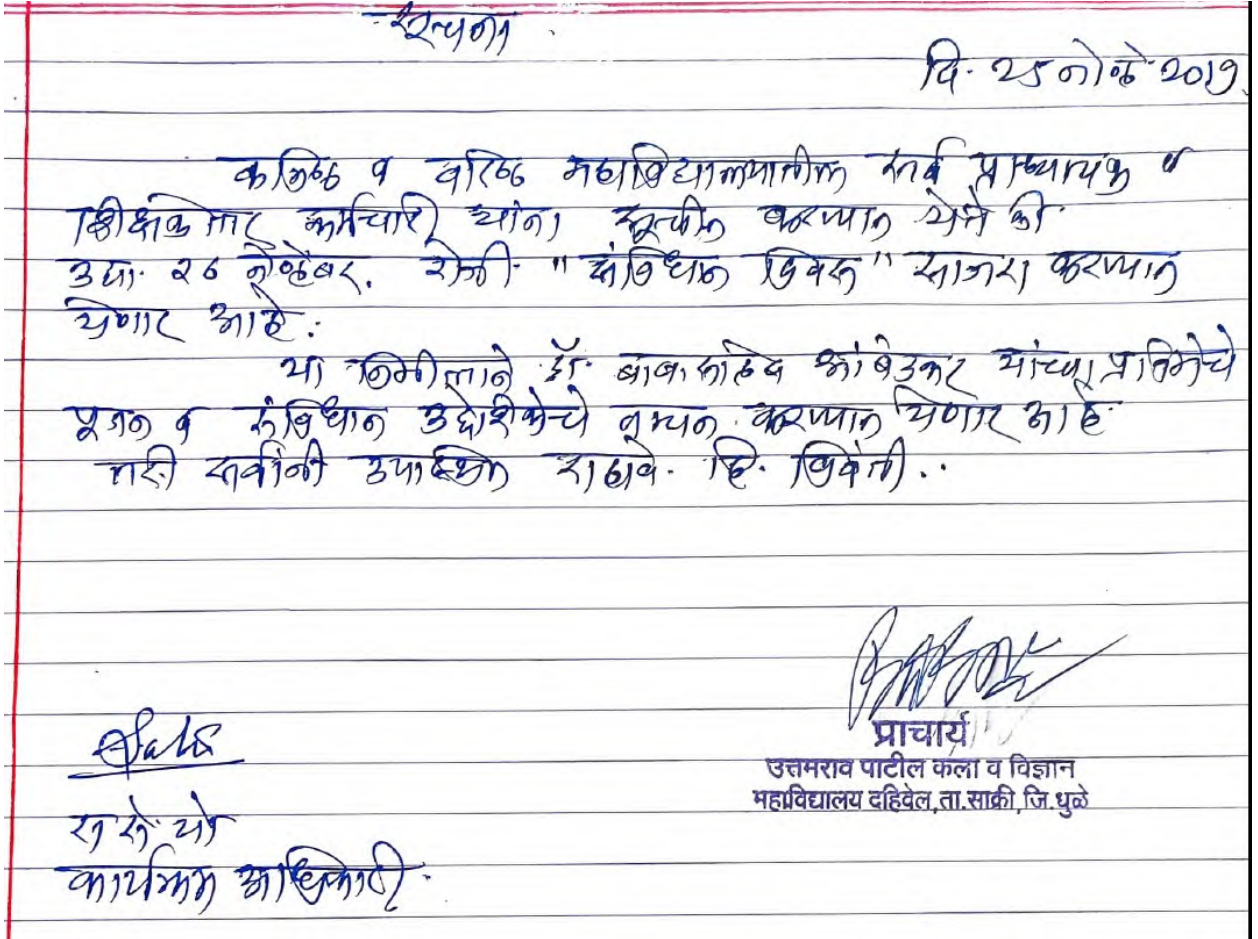 सूचना.
दि. २५ नोव्हे. २०१९.
कनिष्ठ व वरिष्ठ महाविद्यालयातील सर्व प्राध्यापक व
शिक्षकेतर कर्मचारी यांना सूचीत करण्यात येते की
उद्या. २६ नोव्हेंबर. रोजी. "संविधान दिवस" साजरा करण्यात
येणार आहे.
या निमीत्ताने डॉ. बाबासाहेब आंबेडकर यांच्या प्रतिमेचे
पूजन व संविधान उद्देशिकेचे वाचन करण्यात येणार आहे.
तरी सर्वांनी उपस्थित राहावे. हि. विनंती..
प्राचार्य
उत्तमराव पाटील कला व विज्ञान
महाविद्यालय दहिवेल,ता.साक्री,जि.धुळे
रा से. यो
कार्यक्रम अधिकारी.